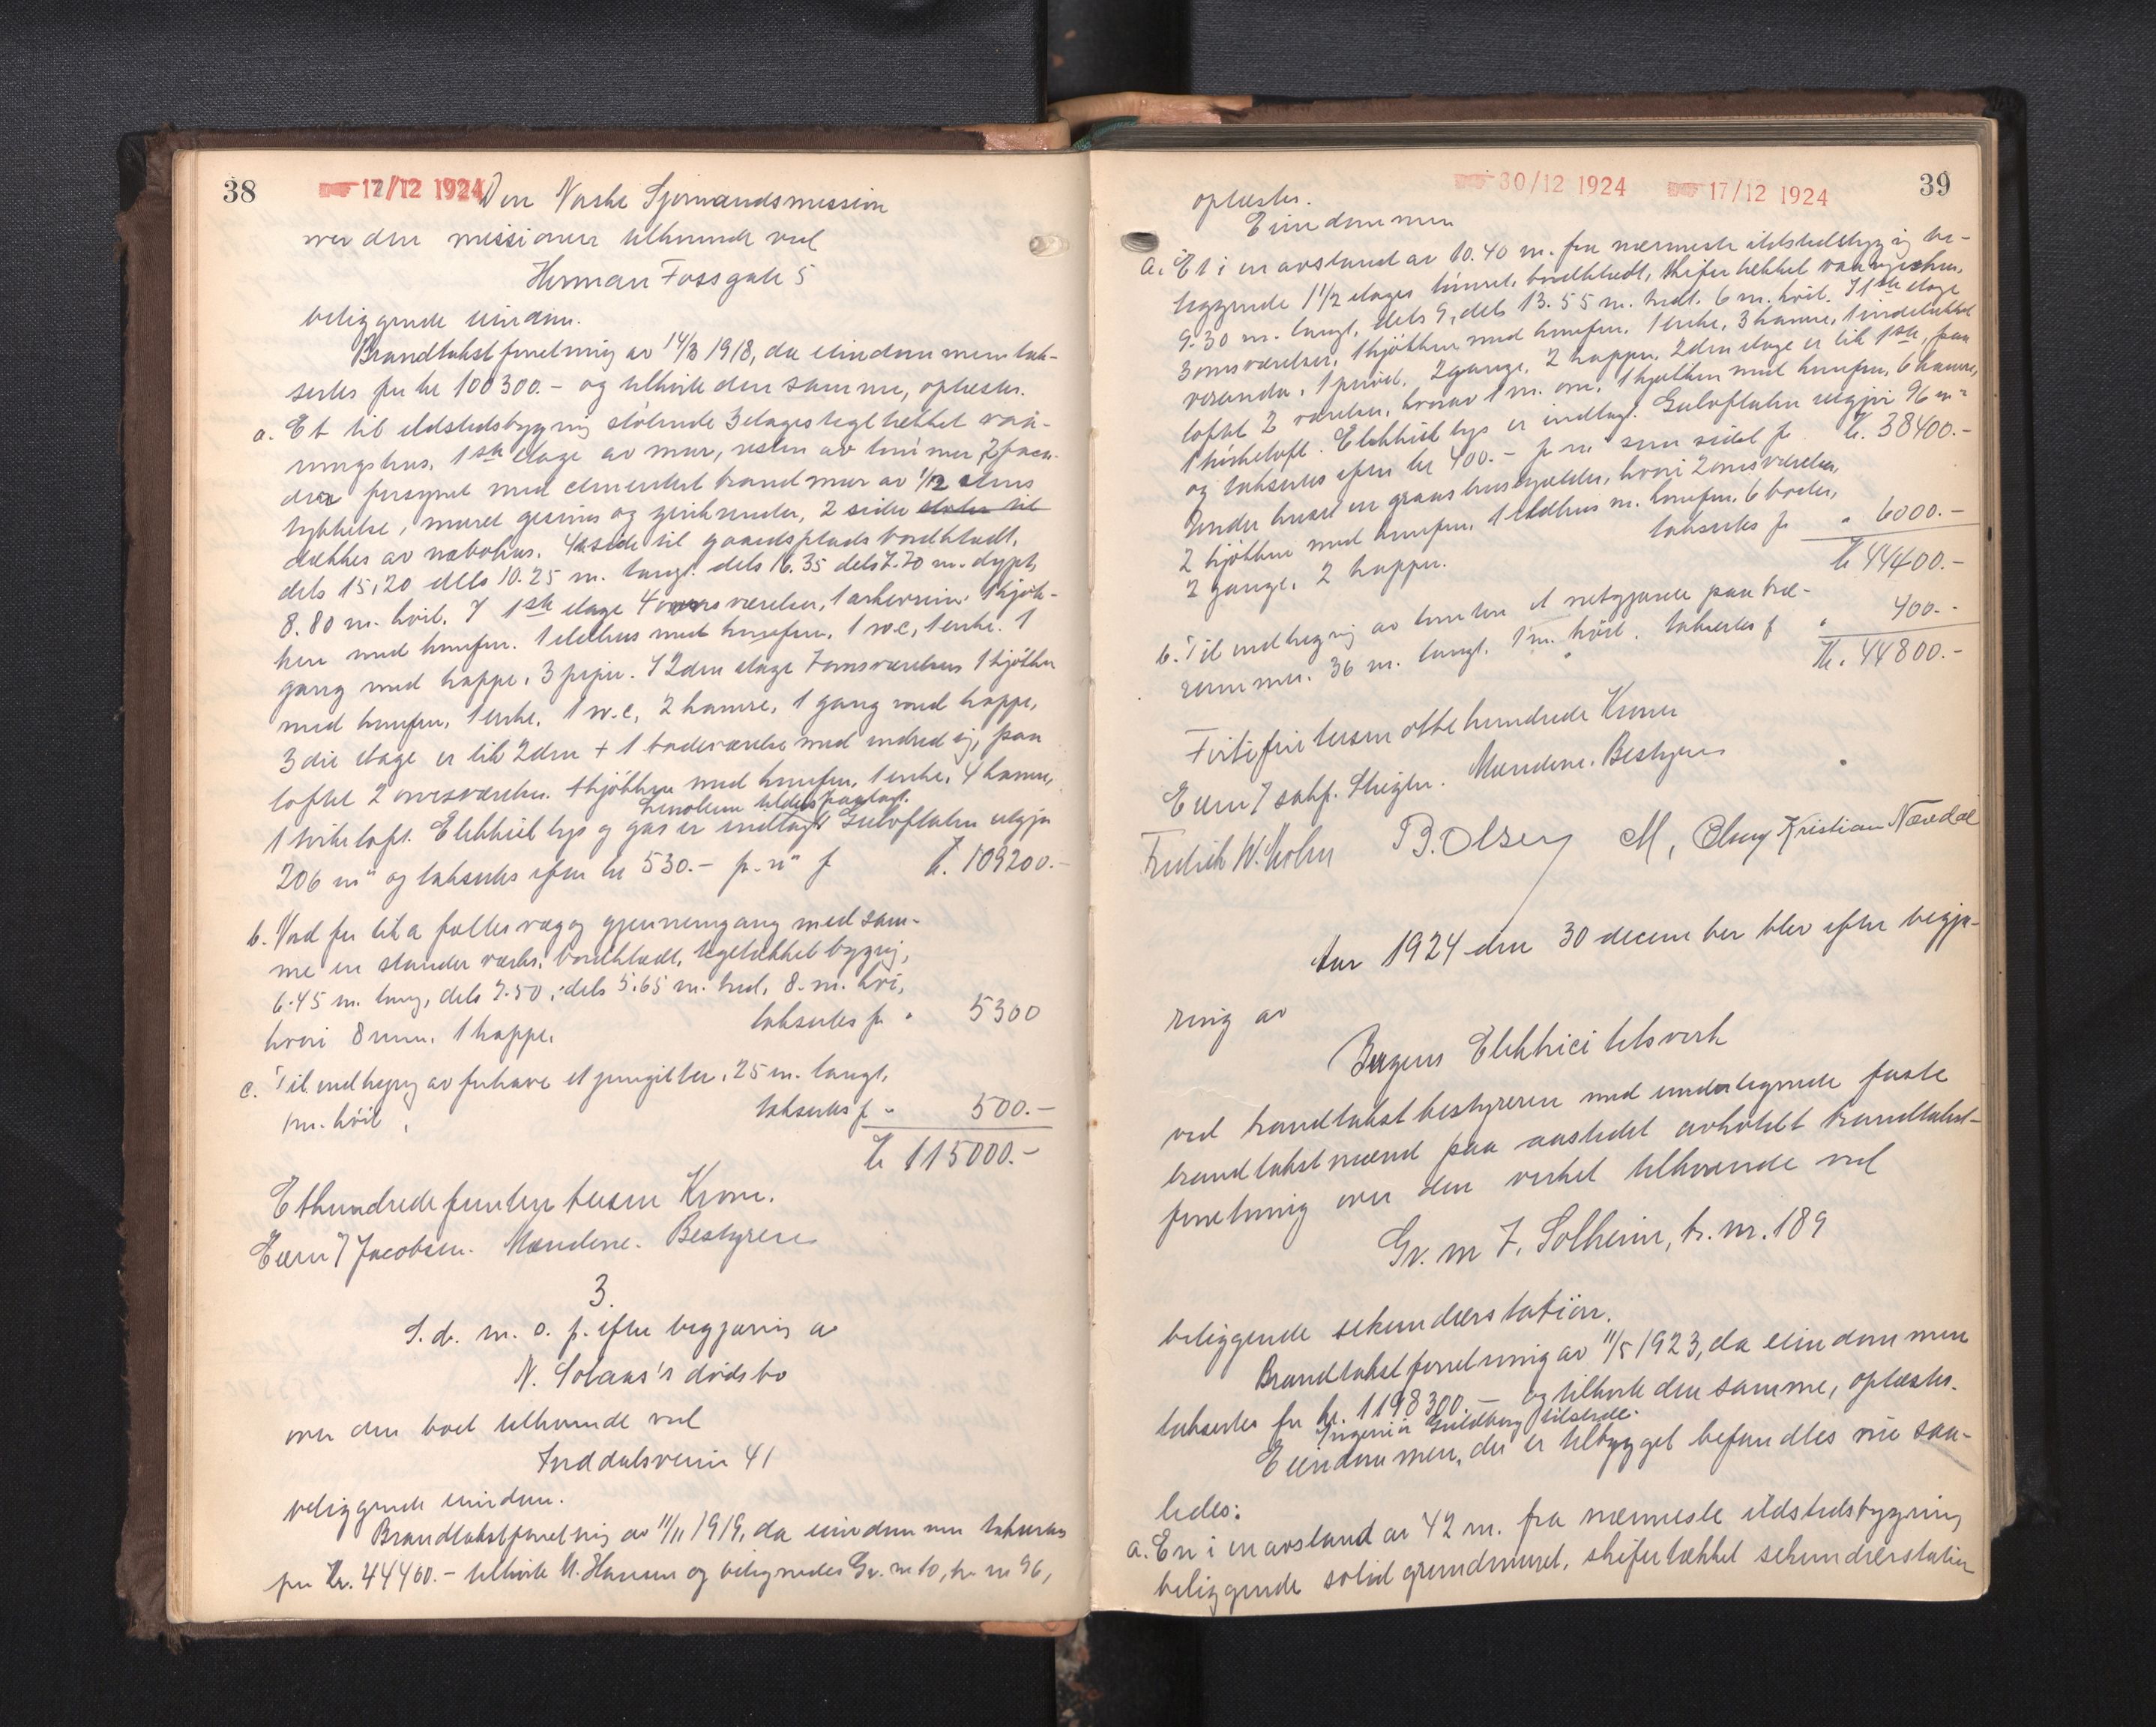 38
17/12 1924
Den Norske Sjømandsmission
over den missionen tilhørende ved
Herman Fossgate 5
beliggende eiendom.
Brandtakstforretning av 14/3 1918, da eiendommen tak-
sertes for kr 100300.- og tilhørte den samme, oplæstes.
a. Et til ildstedsbygning stötende 3 etages tegltækket vaa-
ningshus, 1ste etage av mur, resten av tømmer, 2 faca-
der forsynet med cementert brandmur av 1/2 stens
tykkelse, muret gesims og zink render, 2 sider støter til
dækkes av nabohus. 4de side til gaardsplads bordklædt,
dels 15,20 dels 10.25 m. langt. dels 16.35 dels 7.70 m. dypt,
8.80 m. höit. I 1ste etage 4 værelser, 1 kjök-
ken med komfur. 1 ildhus med komfur, 1 w.c, 1 enke. 1
gang med trappe, 3 piper. I 2den etage 7 omsværelser 1 kjökken
med komfur, 1 enke, 1 w.c, 2 kamre, 1 gang med trappe,
3die etage er lik 2den + 1 badeværelse med indredning, paa
loftet 2 omsværelser. 1 kjökken med komfur, 1 enke, 4 kamre,
Linoleum tildels paalagt.
1 törkeloft. Elektrisk lys og gas er indlagt Gulvflaten utgjør
206 m² og takseres efter kr 530.- pr. m² f kr. 109200.-
b. Nord for lit a fælles væg og gjennemgang med sam-
me en stander værks, bordklædt, tegltækket bygning,
6.45 m. lang, dels 7.50, dels 5.65 m. bred, 8 m. höi,
hvori 8 rum, 1 trappe. takseres for " 5300
c. Til indhegning av forhave et jerngitter, 25 m. langt,
1 m. höit, takseres f " 500.-
kr 115000.-
Ethundrede femten tusen Kroner.
Eieren v/ Jacobsen. Mændene. Bestyreren
3.
S. d. m. o. f. efter begjæring av
N. Solaas's dødsbo
over den boet tilhørende ved
Inddalsveien 41
beliggende eiendom.
Brandtakstforretning av 11/11 1919, da eiendommen takseres
for Kr. 44400.- tilhørte N. Hansen og betegnedes Gr. m 10, br. nr 96,
30/12 1924
17/12 1924
39
oplæstes.
Eiendommen
a. Et i en avstand av 10.40 m. fra nærmeste ildstedsbygning be-
liggende 1 1/2 etages tömret, bordklædt, skifertækket vaaningshus,
9.30 m. langt, dels 9, dels 13.55 m. bredt. 6 m. höit. I 1ste etage
3 omsværelser, 1 kjökken med komfur, 1 enke, 3 kamre, 1 indelukket
veranda, 1 privet, 2 gange, 2 trapper. 2den etage er lik 1ste, paa
loftet 2 værelser, hvorav 1 m. ovn, 1 kjökken med komfur, 6 kamre,
1 törkeloft. Elektrisk lys er indlagt. Gulvflaten utgjør 96 m²
og takseres efter kr 400.- pr m² som sidst f kr. 38400.-
Under huset en graastenskjælder, hvori 2 omsværelser,
2 kjökken med komfur, 1 ildhus m. komfur, 6 boder,
2 gange, 2 trapper. takseres f " 6000.-
kr 44400.-
b. Til indhegning av tomten et netgjærde paa træ-
rammer, 36 m. langt, 1 m. höit. takseres f " 400.-
Kr. 44800.-
Firtifire tusen otte hundrede Kroner
Eieren v/ sakf. Steigler. Mændene. Bestyreren
Fredrik W. Holm B. Olsen M. Kristian Næsdal
Aar 1924 den 30 december blev efter begjæ-
ring av
Bergens Elektricitetsverk
ved brandtakstbestyreren med undertegnede faste
brandtakstmænd paa aastedet avholdt brandtakst-
forretning over den verket tilhørende ved
Gr. nr 7, Solheim, br. nr. 189
beliggende sekundærstation.
Brandtakstforretning av 11/5 1923, da eiendommen
takseres for kr. 1198300.- og tilhørte den samme, oplæstes.
Ingeniør Guldberg tilstede.
Eiendommen, der er tilbygget befandtes nu saa-
ledes:
a. En i en avstand av 42 m. fra nærmeste ildstedsbygning
beliggende solid grundmuret, skifertækket sekundærstation